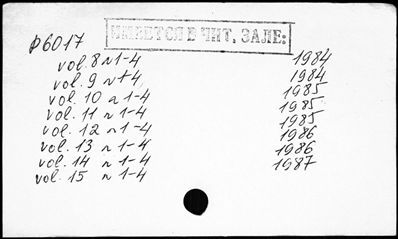 ИМЕЕТСЯ В ЧИТ. ЗАЛЕ:
р6017
vol. 8 n 1-4 1984
vol. 9 n 1-4 1984
vol. 10 n 1-4 1985
vol. 11 n 1-4 1985
vol. 12 n 1-4 1985
vol. 13 n 1-4 1986
vol. 14 n 1-4 1986
vol. 15 n 1-4 1987